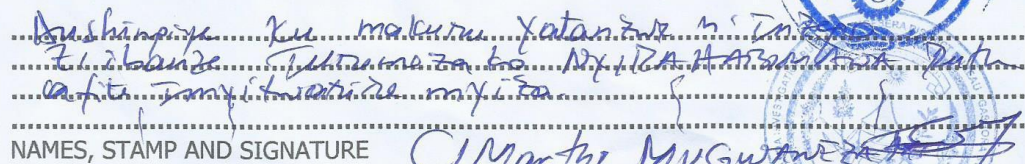 Dushingiye ku makuru yatanzwe n'Inzego
z'ibanze Turemeza ko NYIRAHABIMANA Ruth
afite imyitwarire myiza.
NAMES, STAMP AND SIGNATURE Marthe MUGWANEZA